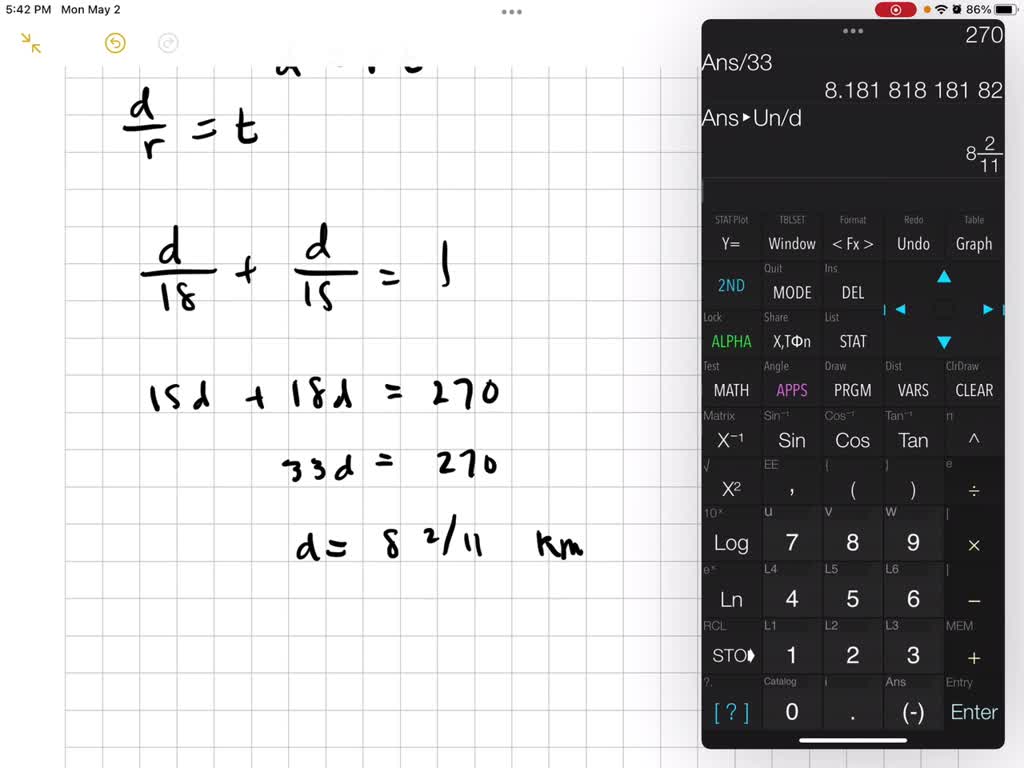 5:42 PM Mon May 2
86%
d/r = t
d/18 + d/15 = 1
15d + 18d = 270
33d = 270
d = 8 2/11 km
270
Ans/33
8.181 818 181 82
Ans▸Un/d
8 2/11
STAT Plot TBLSET Format Redo Table
Y= Window < Fx > Undo Graph
Quit Ins
2ND MODE DEL
Lock Share List
ALPHA X,TΦn STAT
Test Angle Draw Dist ClrDraw
MATH APPS PRGM VARS CLEAR
Matrix Sin⁻¹ Cos⁻¹ Tan⁻¹ π
X⁻¹ Sin Cos Tan ^
√ EE { } e
X² , ( ) ÷
10ˣ u v w
Log 7 8 9 ×
eˣ L4 L5 L6
Ln 4 5 6 −
RCL L1 L2 L3 MEM
STO 1 2 3 +
?. Catalog i Ans Entry
[ ? ] 0 . (-) Enter